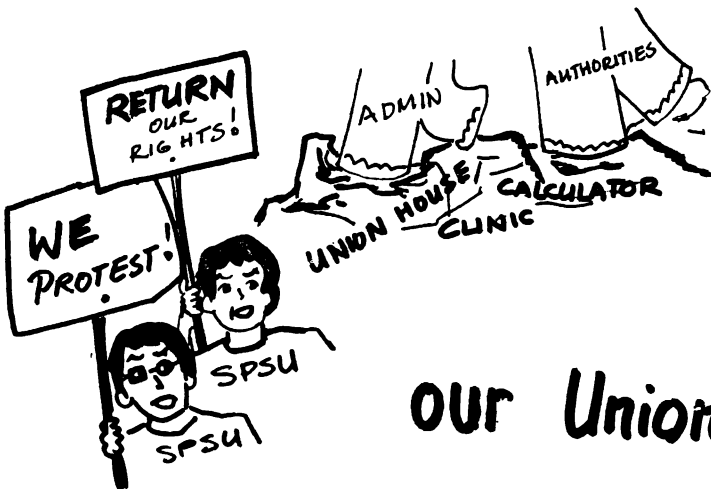 RETURN
OUR
RIGHTS!
WE
PROTEST!
ADMIN
AUTHORITIES
UNION HOUSE
CLINIC
CALCULATOR
SPSU
SPSU
our Union